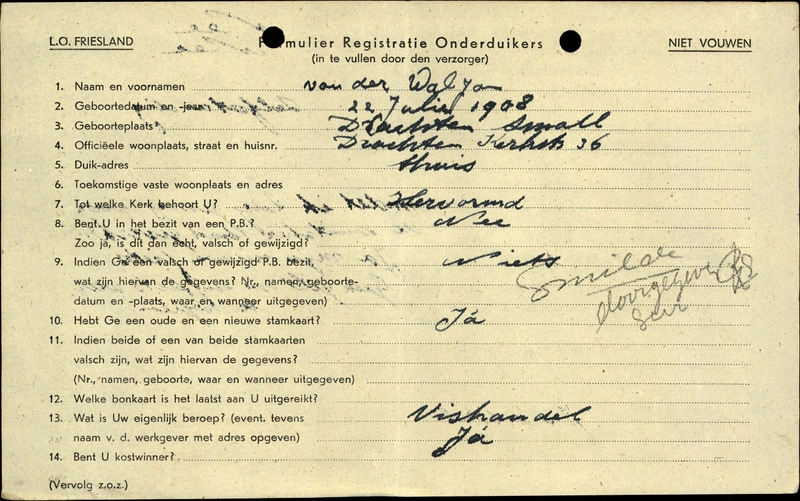 L.O. FRIESLAND
Formulier Registratie Onderduikers
NIET VOUWEN
(in te vullen door den verzorger)
1. Naam en voornamen van der Wal
2. Geboortedatum en -jaar 22 Julie 1908
3. Geboorteplaats Drachten Small
4. Officiëele woonplaats, straat en huisnr. Drachten Kerkstr 36
5. Duik-adres thuis
6. Toekomstige vaste woonplaats en adres
7. Tot welke Kerk behoort U? Hervormd
8. Bent U in het bezit van een P.B.? Nee
Zoo ja, is dit dan echt, valsch of gewijzigd?
9. Indien Ge een valsch of gewijzigd P.B. bezit, Niets
wat zijn hiervan de gegevens? Nr., namen, geboorte-
datum en -plaats, waar en wanneer uitgegeven)
Smilde
doorgegeven
10. Hebt Ge een oude en een nieuwe stamkaart? Ja
11. Indien beide of een van beide stamkaarten
valsch zijn, wat zijn hiervan de gegevens?
(Nr., namen, geboorte, waar en wanneer uitgegeven)
12. Welke bonkaart is het laatst aan U uitgereikt?
13. Wat is Uw eigenlijk beroep? (event. tevens Vishandel
naam v. d. werkgever met adres opgeven) Ja
14. Bent U kostwinner?
(Vervolg z.o.z.)